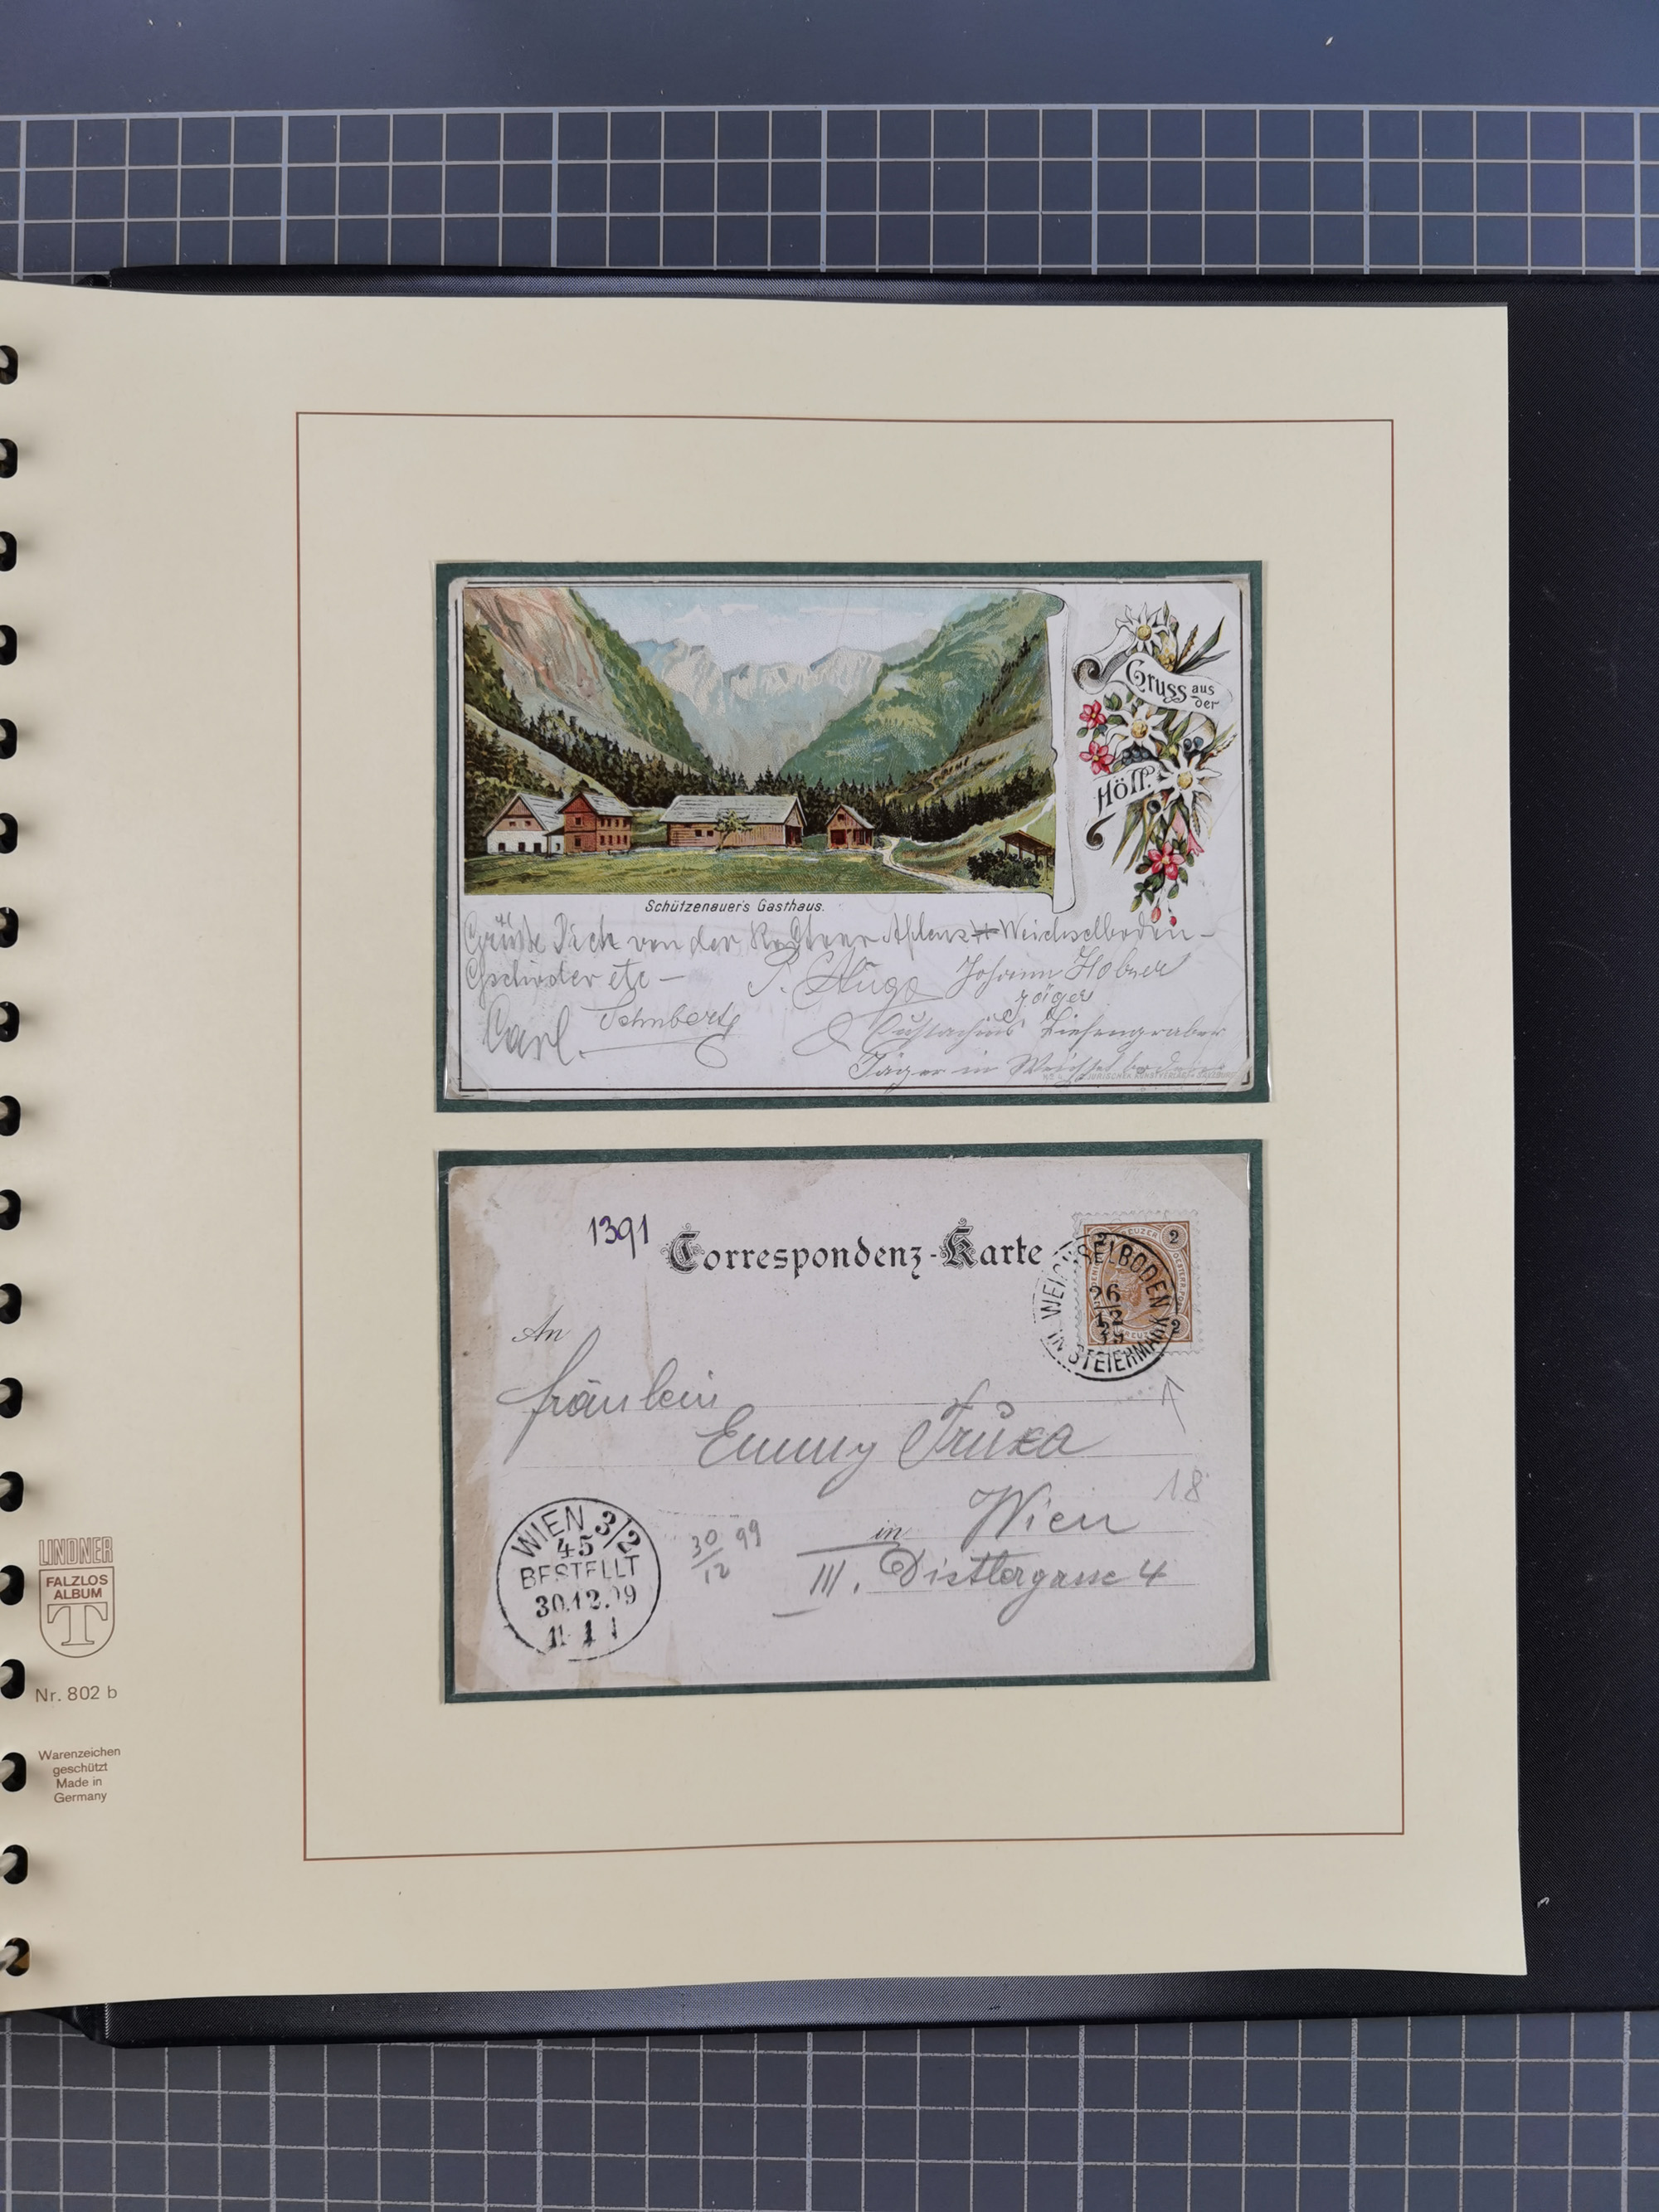 Gruss aus
der
Höll.
Schützenauer's Gasthaus.
Grüße Dich von der Aflenz Weichselboden-
Gschöder etc -
P. Hugo Johann
Jäger
Carl Schubert
Eustachius
Jäger in Weichselboden
1391
Correspondenz-Karte
2 KREUZER 2
2 KREUZER 2
WEICHSELBODEN
26
12
99
IN STEIERMARK
An
Fräulein
Emmy
18
in Wien
III. Distlergasse 4
WIEN 3/2
45
BESTELLT
30.12.99
30
12 99
LINDNER
FALZLOS
ALBUM
T
Nr. 802 b
Warenzeichen
geschützt
Made in
Germany